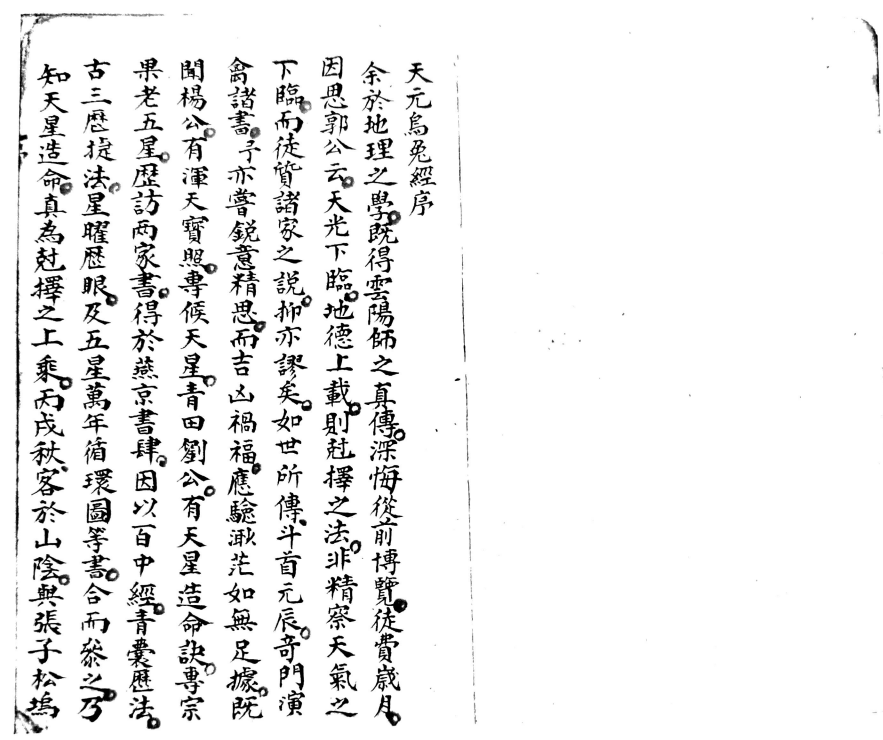 天元烏兔經序
余於地理之學。既得雲陽師之真傳。深悔從前博覽。徒費歲月。
因思郭公云。天光下臨。地德上載。則尅擇之法。非精察天氣之
下臨。而徒質諸家之說。抑亦謬矣。如世所傳、斗首元辰。奇門演
禽諸書。予亦嘗銳意精思。而吉凶禍福。應驗渺茫如無足據。既
聞楊公。有渾天寶照。專候天星。青田劉公。有天星造命訣。專宗
果老五星。歷訪兩家書。得於燕京書肆。因以百中經。青囊歷法。
古三歷捷法。星曜歷眼。及五星萬年循環圖等書。合而叅之。乃
知天星造命。真為尅擇之上乘。丙戌秋、客於山陰。與張子松塢